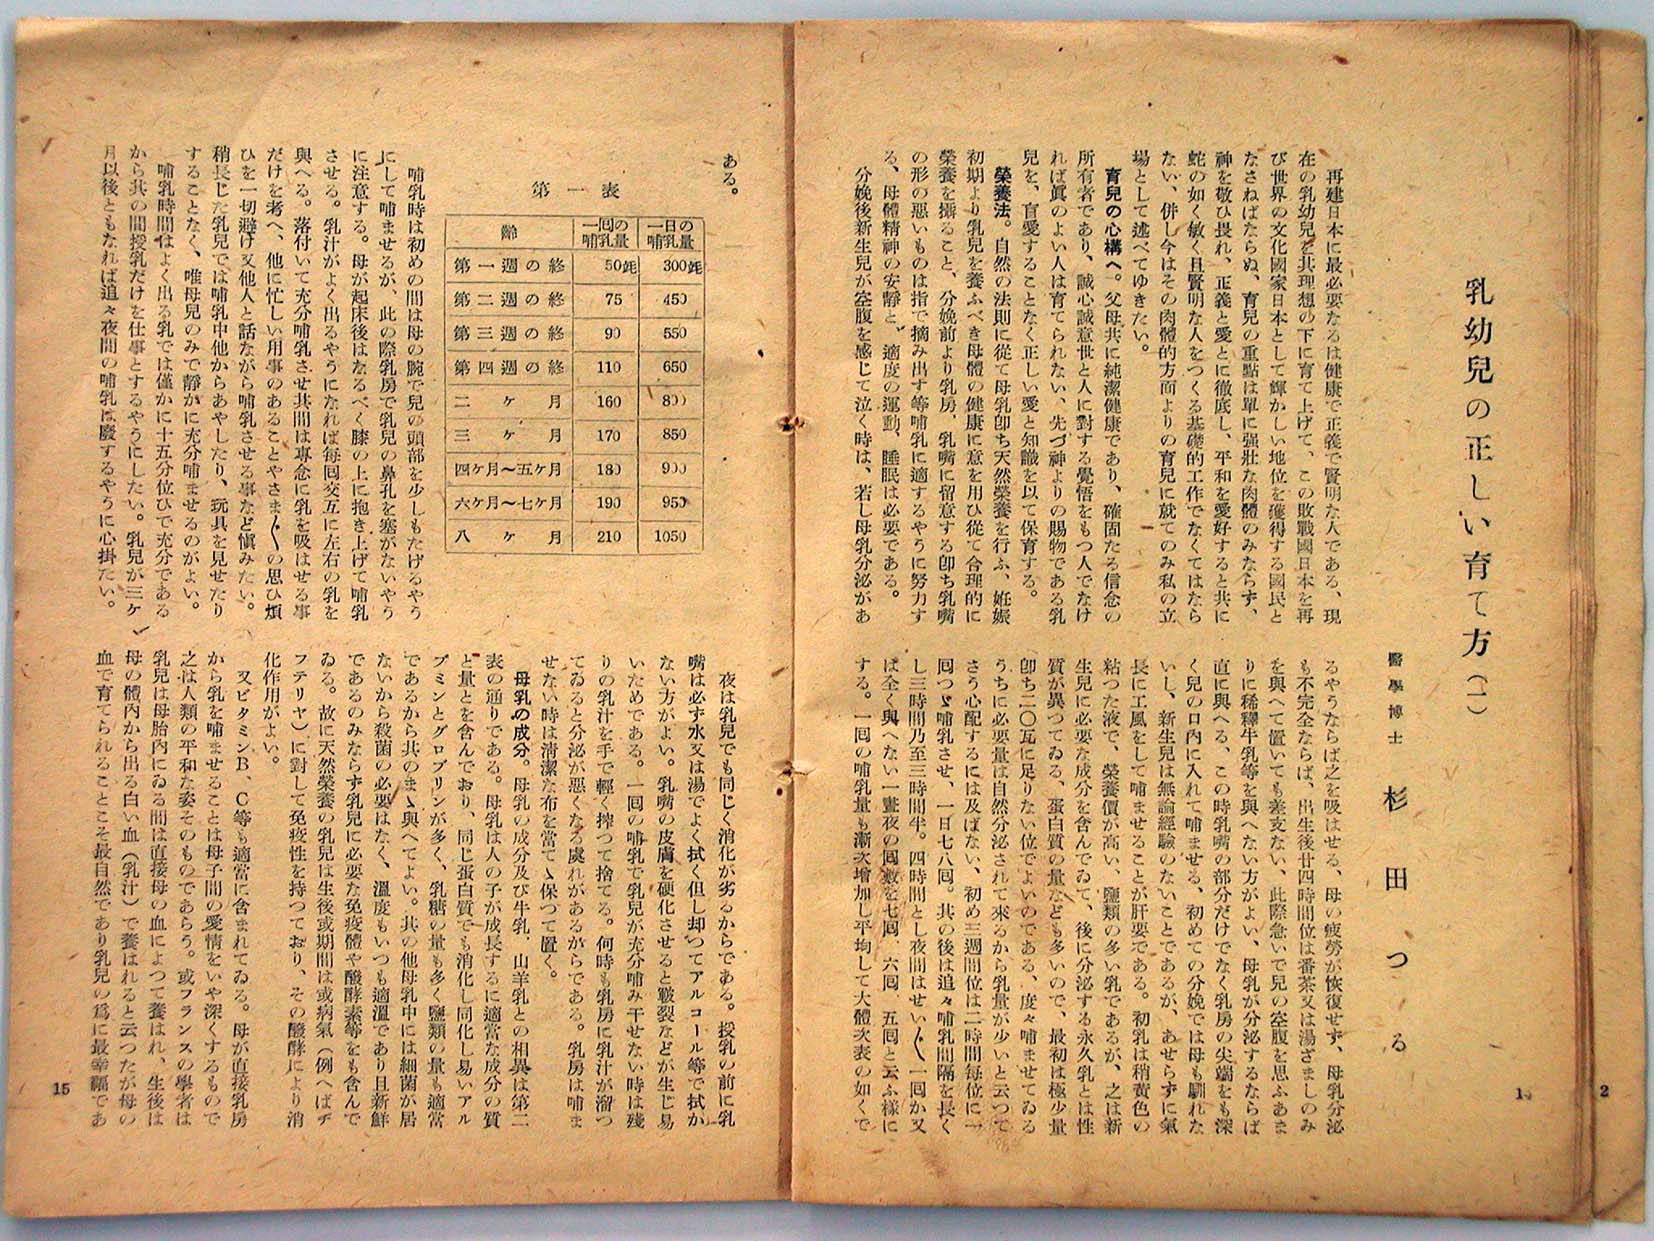 乳幼兒の正しい育て方(一)
醫學博士 杉田つる
再建日本に最必要なるは健康で正義で賢明な人である、現
在の乳幼兒を其理想の下に育て上げて、この敗戰國日本を再
び世界の文化國家日本として輝かしい地位を獲得する國民と
なさねばならぬ、育兒の重點は單に強壯な肉體のみならず、
神を敬ひ畏れ、正義と愛とに徹底し、平和を愛好すると共に
蛇の如く敏く且賢明な人をつくる基礎的工作でなくてはなら
ない、併し今はその肉體的方面よりの育兒に就てのみ私の立
場として述べてゆきたい。
育兒の心構へ。父母共に純潔健康であり、確固たる信念の
所有者であり、誠心誠意世と人に對する覺悟をもつ人でなけ
れば眞のよい人は育てられない、先づ神よりの賜物である乳
兒を、盲愛することなく正しい愛と知識を以て保育する。
榮養法。自然の法則に從て母乳卽ち天然榮養を行ふ、姙娠
初期より乳兒を養ふべき母體の健康に意を用ひ從て合理的に
榮養を攝ること、分娩前より乳房、乳嘴に留意する卽ち乳嘴
の形の惡いものは指で摘み出す等哺乳に適するやうに努力す
る、母體精神の安靜と、適度の運動、睡眠は必要である。
分娩後新生兒が空腹を感じて泣く時は、若し母乳分泌があ
るやうならば之を吸はせる、母の疲勞が恢復せず、母乳分泌
も不完全ならば、出生後廿四時間位は番茶又は湯ざましのみ
を與へて置いても差支ない、此際急いで兒の空腹を思ふあま
りに稀釋牛乳等を與へない方がよい、母乳が分泌するならば
直に與へる、この時乳嘴の部分だけでなく乳房の尖端をも深
く兒の口内に入れて哺ませる、初めての分娩では母も馴れな
いし、新生兒は無論經驗のないことであるが、あせらずに氣
長に工風をして哺ませることが肝要である。初乳は稍黃色の
粘つた液で、榮養價が高い、鹽類の多い乳であるが、之は新
生兒に必要な成分を含んでゐて、後に分泌する永久乳とは性
質が異つてゐる、蛋白質の量なども多いので、最初は極少量
卽ち二〇瓦に足りない位でよいのである、度々哺ませてゐる
うちに必要量は自然分泌されて來るから乳量が少いと云つて
さう心配するには及ばない、初め三週間位は二時間每位に一
囘つゝ哺乳させ、一日七八囘。其の後は追々哺乳間隔を長く
し三時間乃至三時間半。四時間とし夜間はせい〲一囘か又
は全く與へない一晝夜の囘數を七囘、六囘、五囘と云ふ樣に
する。一囘の哺乳量も漸次增加し平均して大體次表の如くで
2
ある。
第一表
齡 一囘の哺乳量 一日の哺乳量
第一週の終 50竓 300竓
第二週の終 75 450
第三週の終 90 550
第四週の終 110 650
二ヶ月 160 800
三ヶ月 170 850
四ケ月〜五ケ月 180 900
六ケ月〜七ケ月 190 950
八ヶ月 210 1050
哺乳時は初めの間は母の腕で兒の頭部を少しもたげるやう
にして哺ませるが、此の際乳房で乳兒の鼻孔を塞がないやう
に注意する。母が起床後はなるべく膝の上に抱き上げて哺乳
させる。乳汁がよく出るやうになれば每囘交互に左右の乳を
與へる。落付いて充分哺乳させ其間は專念に乳を吸はせる事
だけを考へ、他に忙しい用事のあることやさま〲の思ひ煩
ひを一切避け又他人と話ながら哺乳させる事など愼みたい。
稍長じた乳兒では哺乳中他からあやしたり、玩具を見せたり
することなく、唯母兒のみで靜かに充分哺ませるのがよい。
哺乳時間はよく出る乳では僅かに十五分位ひで充分である
から其の間授乳だけを仕事とするやうにしたい。乳兒が三ケ
月以後ともなれば追々夜間の哺乳は慶するやうに心掛たい。
夜は乳兒でも同じく消化が劣るからである。授乳の前に乳
嘴は必ず水又は湯でよく拭く但し却つてアルコール等で拭か
ない方がよい。乳嘴の皮膚を硬化させると皸裂などが生じ易
いためである。一囘の哺乳で乳兒が充分哺み干せない時は殘
りの乳汁を手で輕く搾つて捨てる。何時も乳房に乳汁が溜つ
てゐると分泌が惡くなる虞れがあるからである。乳房は哺ま
せない時は淸潔な布を當てゝ保つて置く。
母乳の成分。母乳の成分及び牛乳、山羊乳との相異は第二
表の通りである。母乳は人の子が成長するに適當な成分の質
と量とを含んでおり、同じ蛋白質でも消化し同化し易いアル
ブミンとグロブリンが多く、乳糖の量も多く鹽類の量も適當
であるから其のまゝ與へてよい。其の他母乳中には細菌が居
ないから殺菌の必要はなく、溫度もいつも適溫であり且新鮮
であるのみならず乳兒に必要な免疫體や醱酵素等をも含んで
ゐる。故に天然榮養の乳兒は生後或期間は或病氣(例へばヂ
フテリヤ)に對して免疫性を持つており、その醱酵により消
化作用がよい。
又ビタミンB、C等も適當に含まれてゐる。母が直接乳房
から乳を哺ませることは母子間の愛情をいや深くするもので
之は人類の平和な姿そのものであらう。或フランスの學者は
乳兒は母胎內にゐる間は直接母の血によつて養はれ、生後は
母の體內から出る白い血(乳汁)で養はれると云つたが母の
血で育てられることこそ最自然であり乳兒の爲に最幸福であ
15